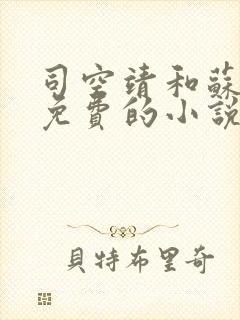 司空靖和蘇
免費的小說
貝特布里奇